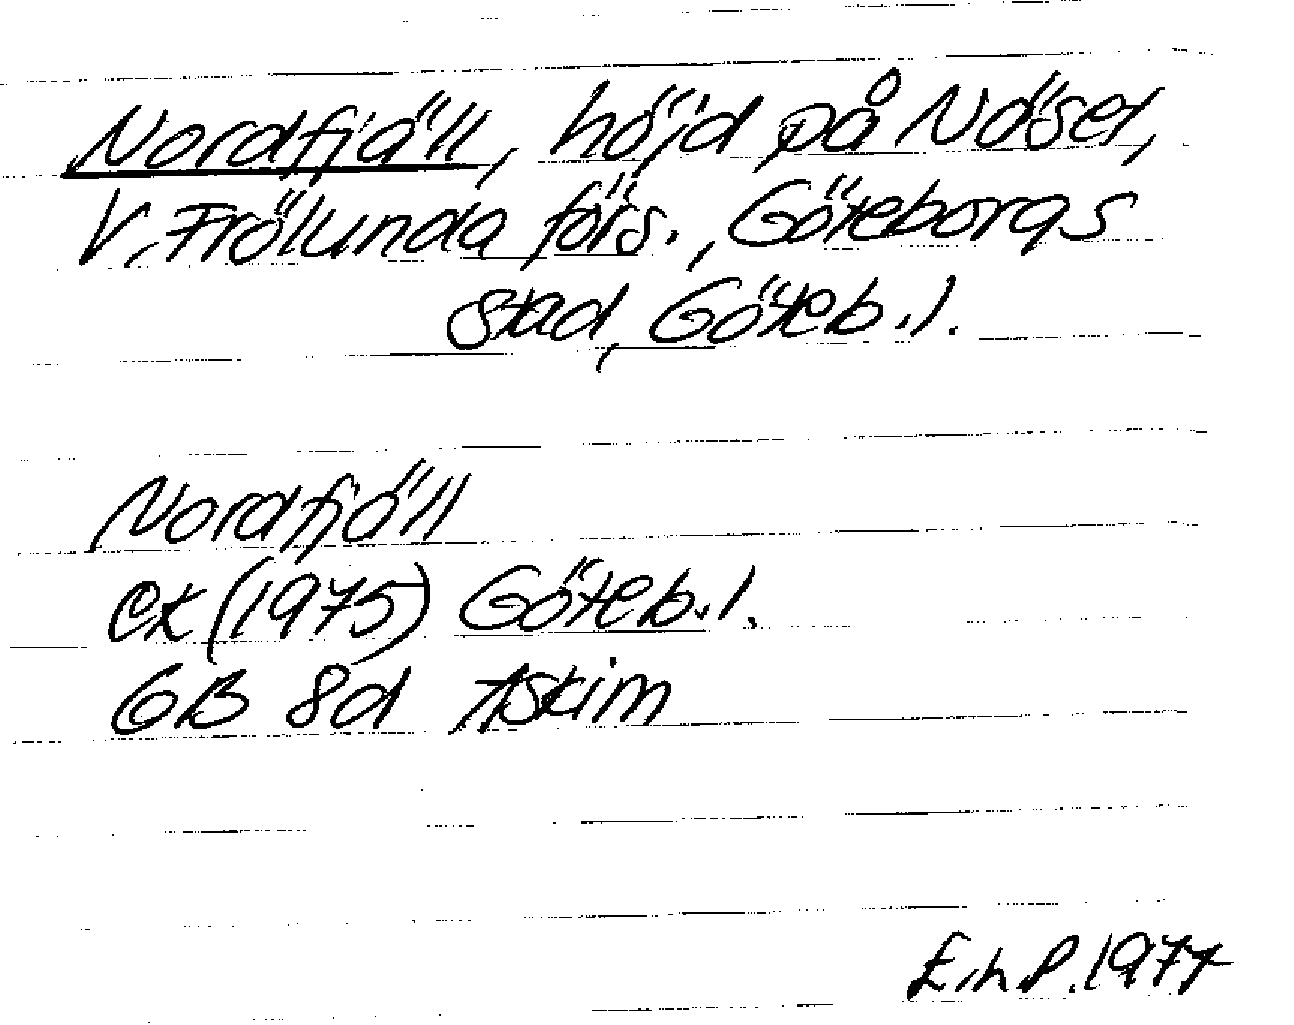 Nordfjäll, höjd på Näset,
V. Frölunda förs., Göteborgs
stad, Göteb. l.
Nordfjäll
ek (1975) Göteb. l.
6B 8d Askim
E.h P. 1977